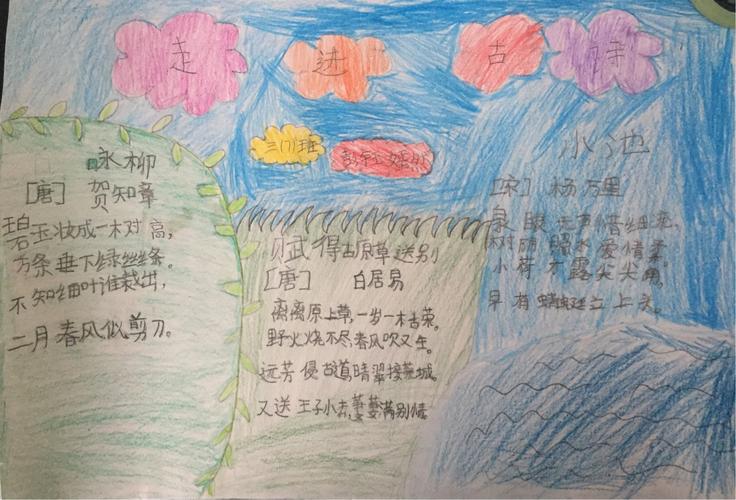 走进古诗
三(1)班
咏柳
[唐] 贺知章
碧玉妆成一树高，
万条垂下绿丝绦。
不知细叶谁裁出，
二月春风似剪刀。
赋得古原草送别
[唐] 白居易
离离原上草，一岁一枯荣。
野火烧不尽，春风吹又生。
远芳侵古道，晴翠接荒城。
又送王子去，萋萋满别情
小池
[宋] 杨万里
泉眼无声惜细流，
树阴照水爱情柔。
小荷才露尖尖角，
早有蜻蜓立上头。